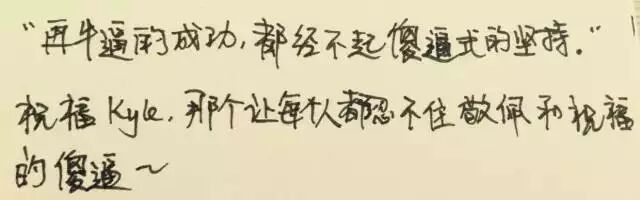 “再牛逼的成功,都经不起傻逼式的坚持.”
祝福Kyle,那个让每个人都忍不住敬佩和祝福
的傻逼~